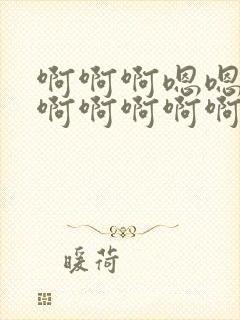 啊啊啊嗯嗯
啊啊啊啊啊
暖荷